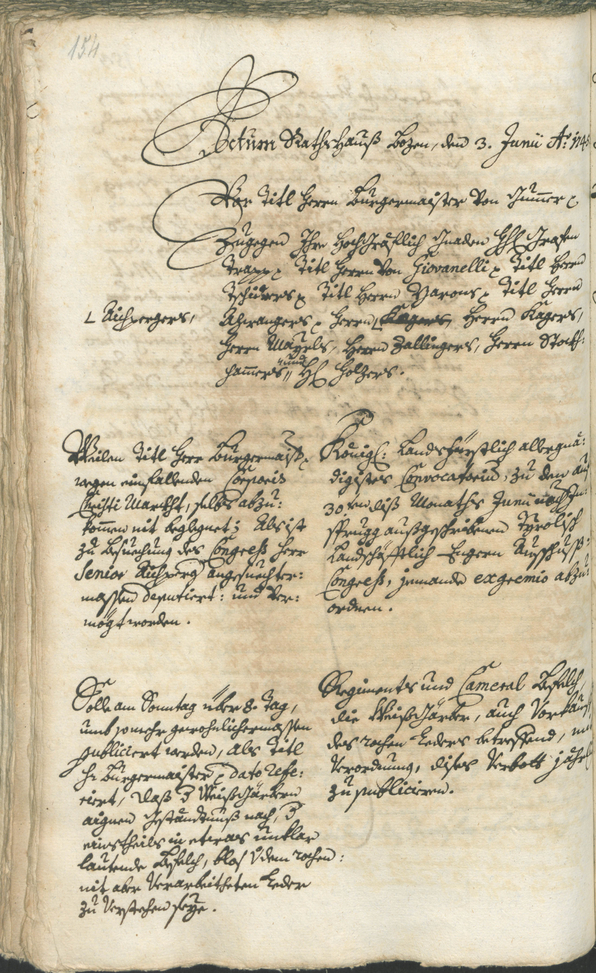 154
Actum Rathshauß Bozen, den 3. Junii Aō. 174
Vor Titl Herrn Burgermaister von
Zugegen Ihro Hochgräfflich Gnaden HH. Grafen
Trapp, Titl Herrn von Giovanelli, Titl Herrn
Titl Herrn Titl Herrn
L Aichpergers, Herrn Herrn Kagers,
Herrn Mayrls, Herrn Zallingers, Herrn Stock-
hamers, und H. Holzers.
Weilen Titl Herr Burgermaister
wegen einfallenden Corporis
Christi Marckht, selbs abzu-
kommen nit beglegnet; Als ist
zu besuechung des Congress Herr
Senior Aichperg angesuechter-
massen deputiert: und Ver-
mögt worden.
Königl: Landsfürstlich allergnä-
digistes Convocatorium, zu dem auf
30ten diß Monaths Junii nacher Jn-
sprugg außgeschribenen Tyrolisch
Landschäfftlich Engern Ausschuss-
Congress, jemande ex gremio abzu-
ordnen.
Solle am Sonntag über 8. Tag,
umb so mehr gewohnlichermassen
publiciert werden, als Titl
Hr. Burgermaister dato refe-
riert, daß Weißgärbern
aignen geständtnuß nach,
einstheils in etwas unklar
lautende Befelch, blos von dem rochen:
nit aber Verarbeitheten Leder
zu Verstehen seye.
Regiments und Cameral Befelch
die Weißgärber, auch Vorkauf
des rochen Leders betreffend, mit
Verordnung, dises Verbott jährl
zu publicieren.